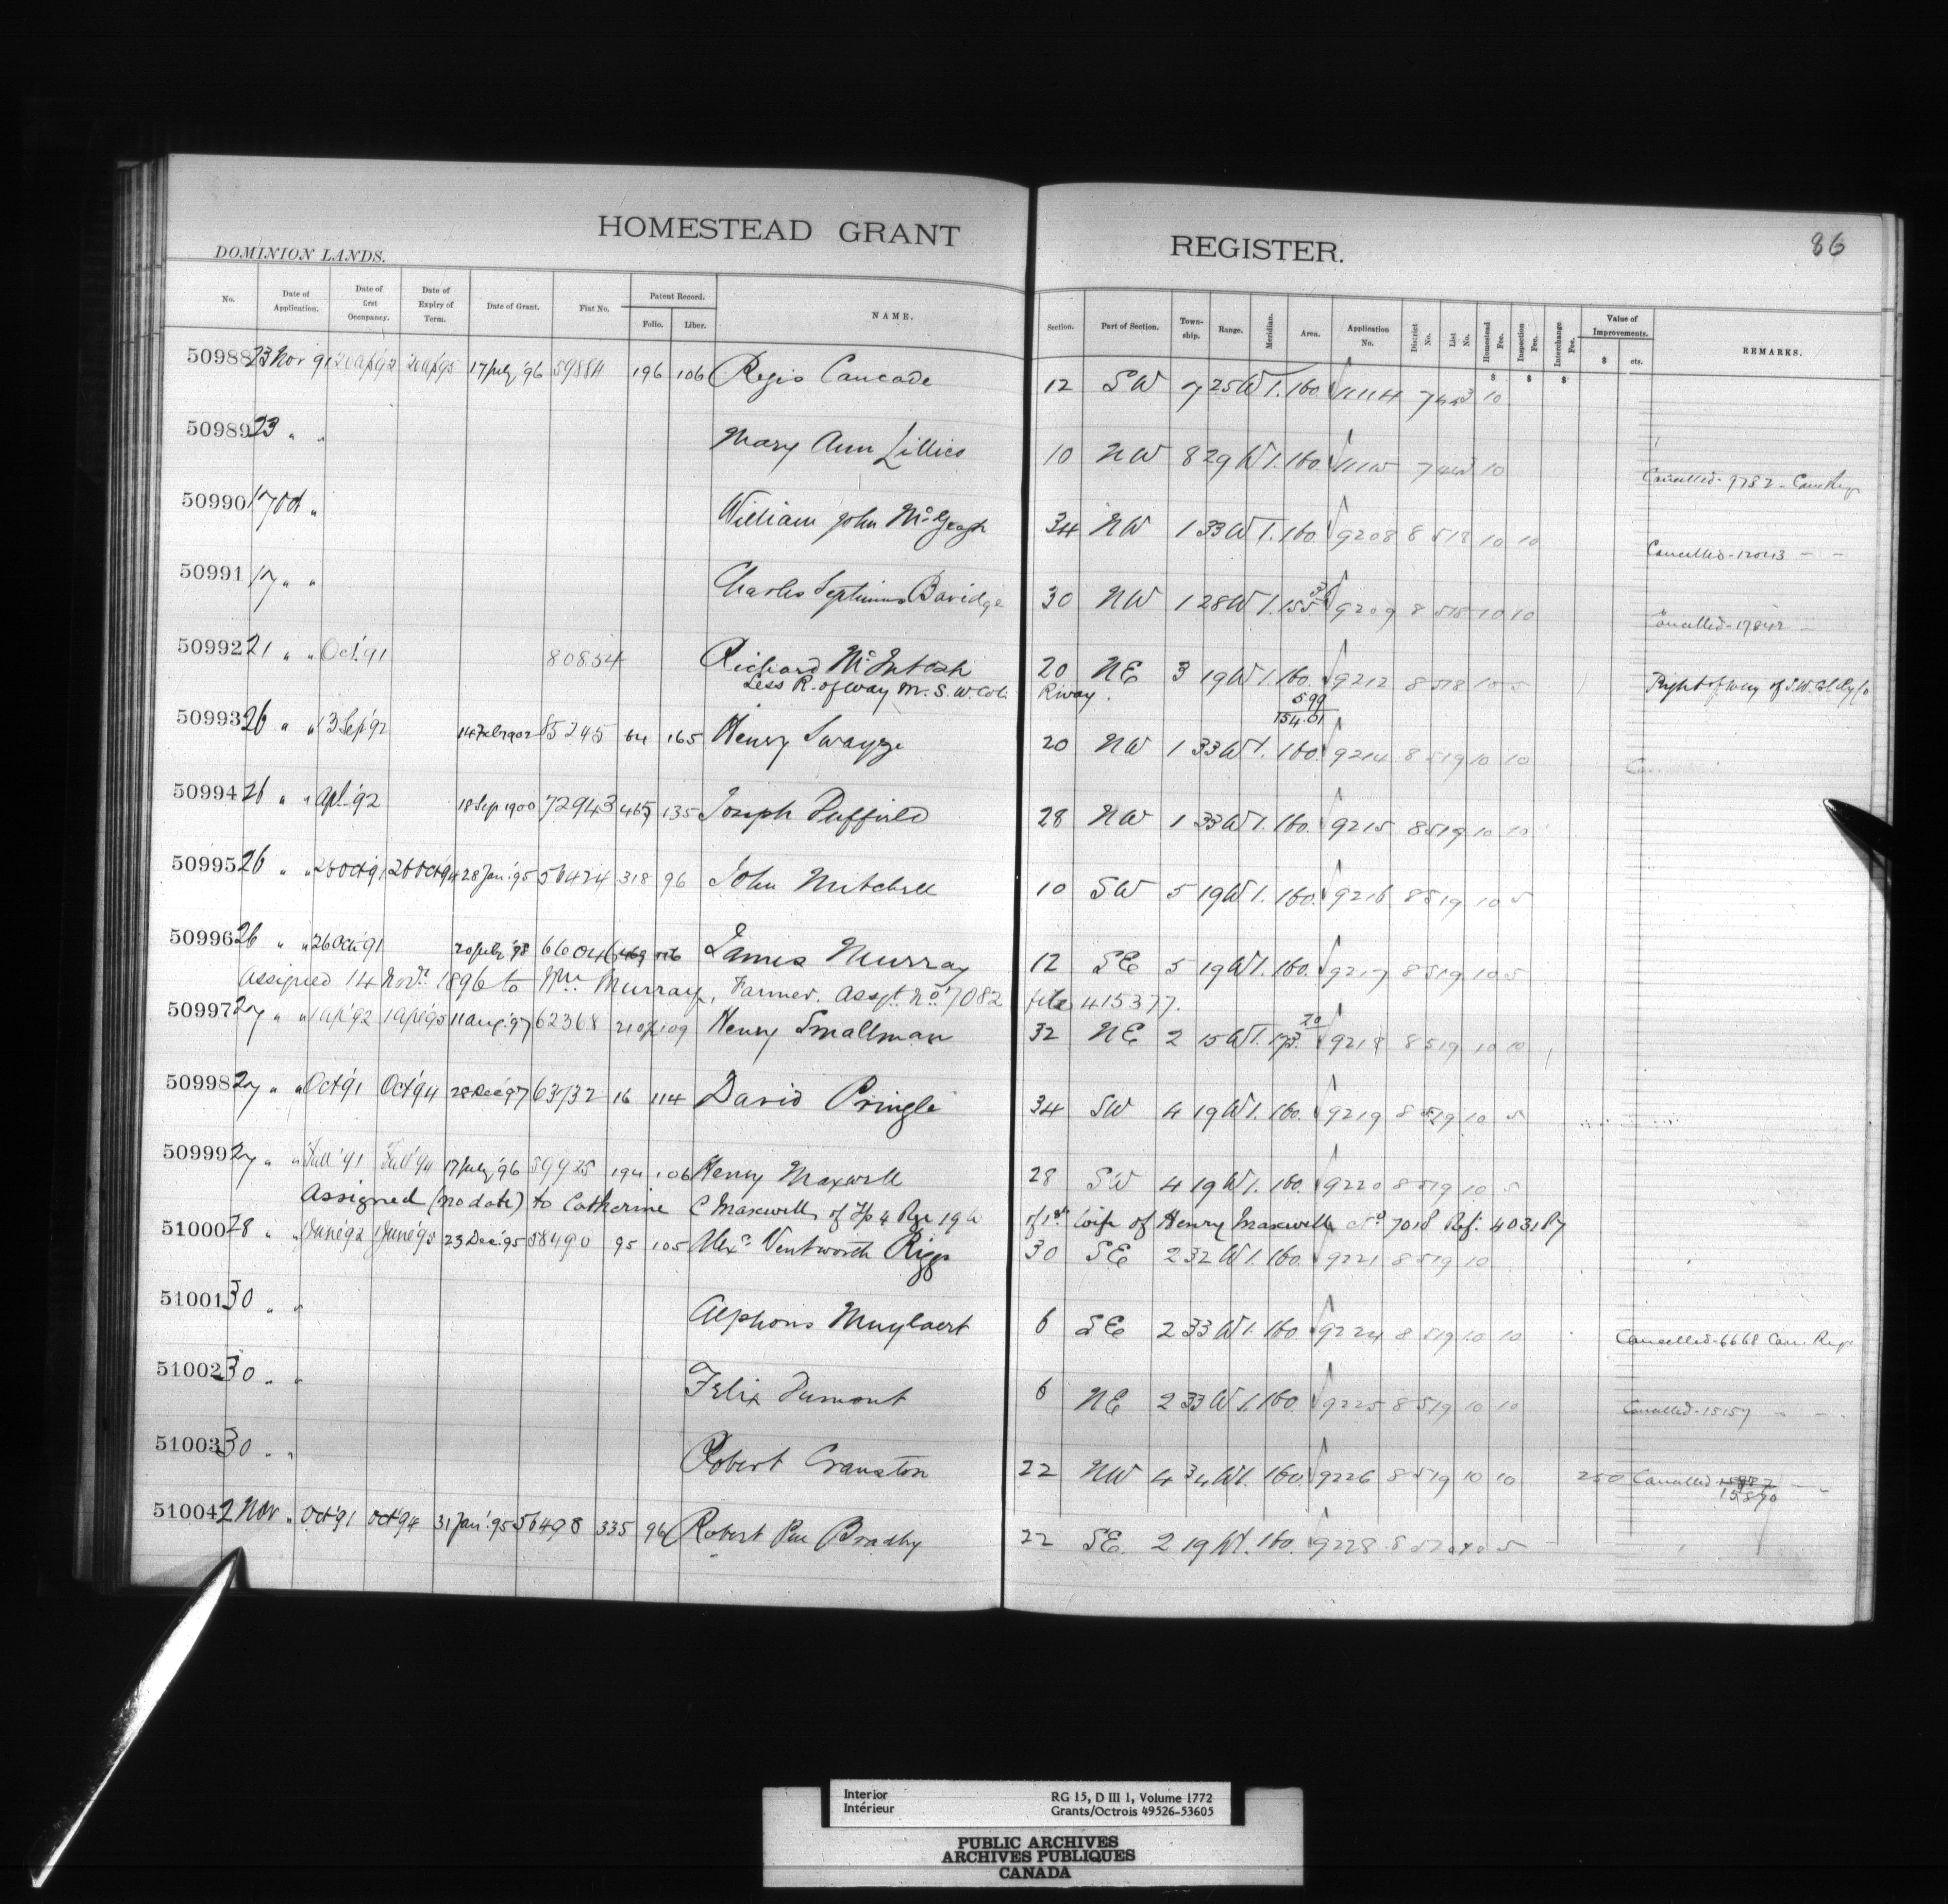 HOMESTEAD GRANT REGISTER. 86
DOMINION LANDS.
No. Date of Application. Date of first Occupancy. Date of Expiry of Term. Date of Grant. Fiat No. Patent Record. Folio. Liber. NAME. Section. Part of Section. Township. Range. Meridian. Area. Application No. District No. List No. Homestead Fee. Inspection Fee. Interchange Fee. Value of Improvements. $ cts. REMARKS.
50988 23 Nov 91 20 Ap '92 20 Ap '95 17 July '96 59884 196 106 Regis Cancade 12 SW 7 25 W 1. 160 11114 7 10
50989 23 " " Mary Ann Lillico 10 NW 8 29 W 1. 160 7 10 Cancelled - 9782 - Canc Regr
50990 17 Oct " William John McGeagh 34 NW 1 33 W 1. 160. 9208 8 518 10 10 Cancelled - 12043 - -
50991 17 " " Charles Septimus Bavidge 30 NW 1 28 W 1. 155. 9209 8 518 10 10 Cancelled - 17842
50992 21 " " Oct. '91 80854 Richard McIntosh 20 NE 3 19 W 1. 160. 9212 8 518 10 5 Right of Way of S.W. Col Ry Co
Less R. of Way M. S. W. Col. Rlway. 5.99
154.01
50993 26 " " 3 Sep '92 14 Feb 1902 85245 64 165 Henry Swayze 20 NW 1 33 W 1. 160. 9214 8 519 10 10
50994 26 " " Apl. '92 18 Sep 1900 72943 465 135 Joseph Duffield 28 NW 1 33 W 1. 160. 9215 8 519 10 10
50995 26 " " 26 Oct 91 26 Oct 94 28 Jan. '95 56424 318 96 John Mitchell 10 SW 5 19 W 1. 160. 9216 8 519 10 5
50996 26 " " 26 Oct '91 20 July '98 66046 469 James Murray 12 SE 5 19 W 1. 160. 9217 8 519 10 5
Assigned 14 Novr. 1896 to Wm. Murray, Farmer. Assgt. No 7082 file 415377.
50997 27 " " 1 Ap '92 1 Apl '95 11 Aug. '97 62368 210 109 Henry Smallman 32 NE 2 15 W 1. 173. 20 9218 8 519 10 10
50998 27 " " Oct '91 Oct '94 28 Dec '97 63732 16 114 David Pringle 34 SW 4 19 W 1. 160. 9219 8 519 10 5
50999 27 " " Fall '91 Fall '94 17 July '96 59925 194 106 Henry Maxwell 28 SW 4 19 W 1. 160. 9220 8 519 10 5
Assigned (no date) to Catherine C Maxwell, of Tp 4 Rge 19 W of 1st wife of Henry Maxwell No 7018 Ref: 403187
51000 28 " " 1 June '92 1 June '95 23 Dec. '95 58490 95 105 Alexr. Ventworth Riggs 30 SE 2 32 W 1. 160. 9221 8 519 10
51001 30 " " Alphons Muylaert 6 SE 2 33 W 1. 160 9224 8 519 10 10 Cancelled - 6668 Canc. Regr
51002 30 " " Felix Dumont 6 NE 2 33 W 1. 160 9225 8 519 10 10 Cancelled - 15157 - -
51003 30 " " Robert Cranston 22 NW 4 34 W 1. 160 9226 8 519 10 10 250 Cancelled
15870
51004 2 Nov " Oct '91 Oct '94 31 Jan. '95 56498 335 96 Robert Bradley 22 SE. 2 19 W 1. 160. 9228 8 520 10 5
Interior
Intérieur
RG 15, D III 1, Volume 1772
Grants/Octrois 49526-53605
PUBLIC ARCHIVES
ARCHIVES PUBLIQUES
CANADA